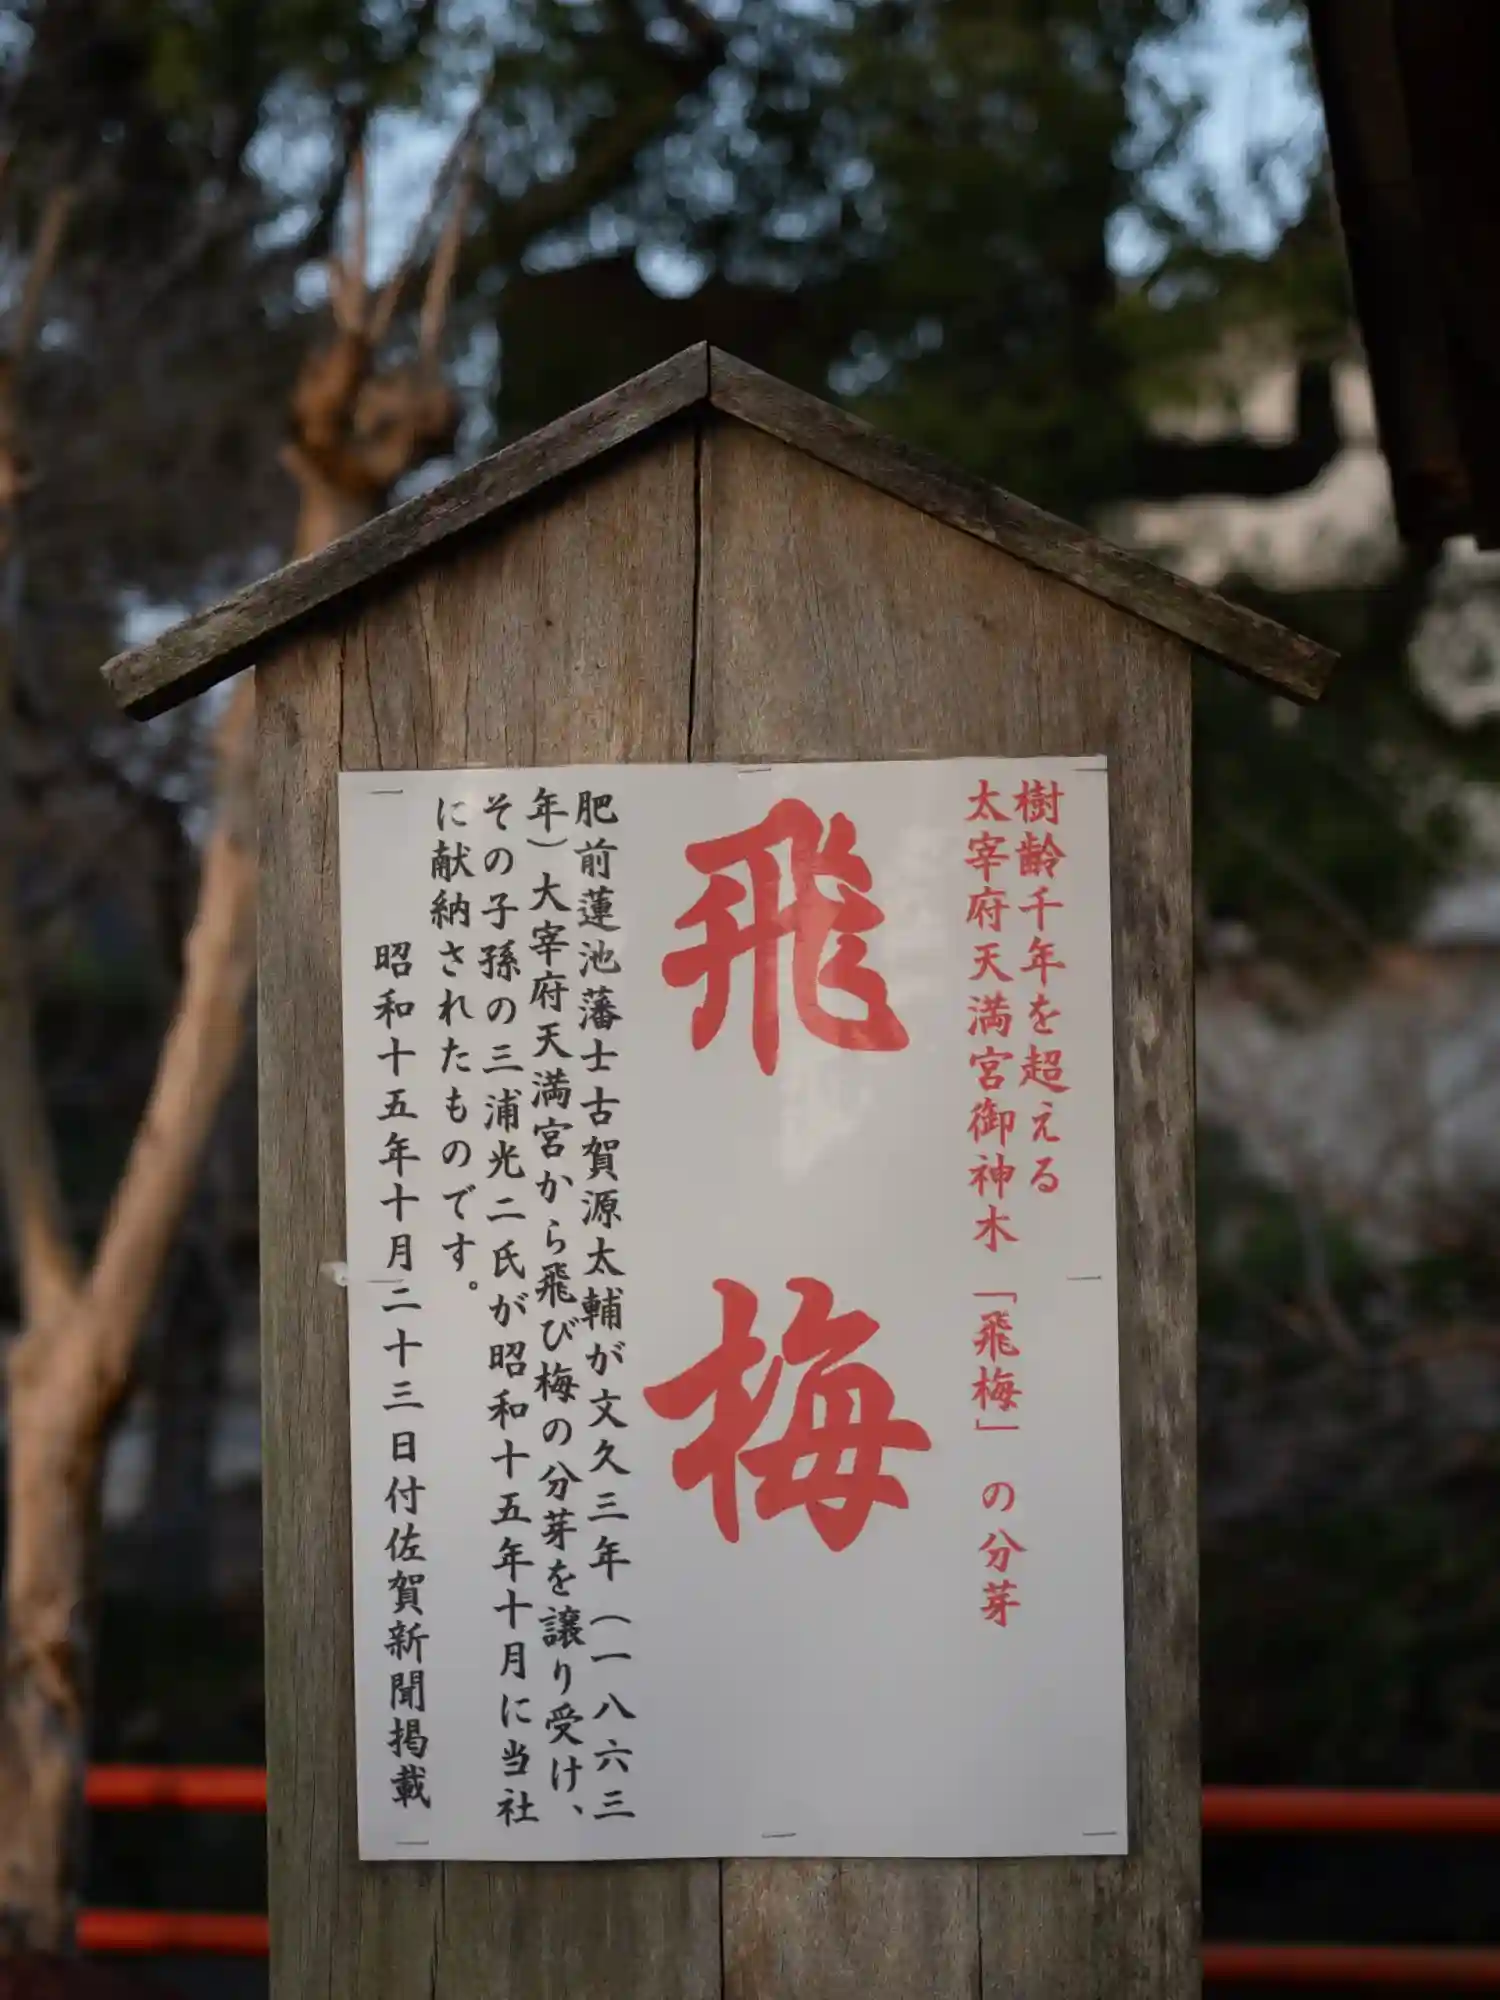 樹齢千年を超える
太宰府天満宮御神木「飛梅」の分芽
飛梅
肥前蓮池藩士古賀源太輔が文久三年(一八六三
年)大宰府天満宮から飛び梅の分芽を譲り受け、
その子孫の三浦光二氏が昭和十五年十月に当社
に献納されたものです。
昭和十五年十月二十三日付佐賀新聞掲載